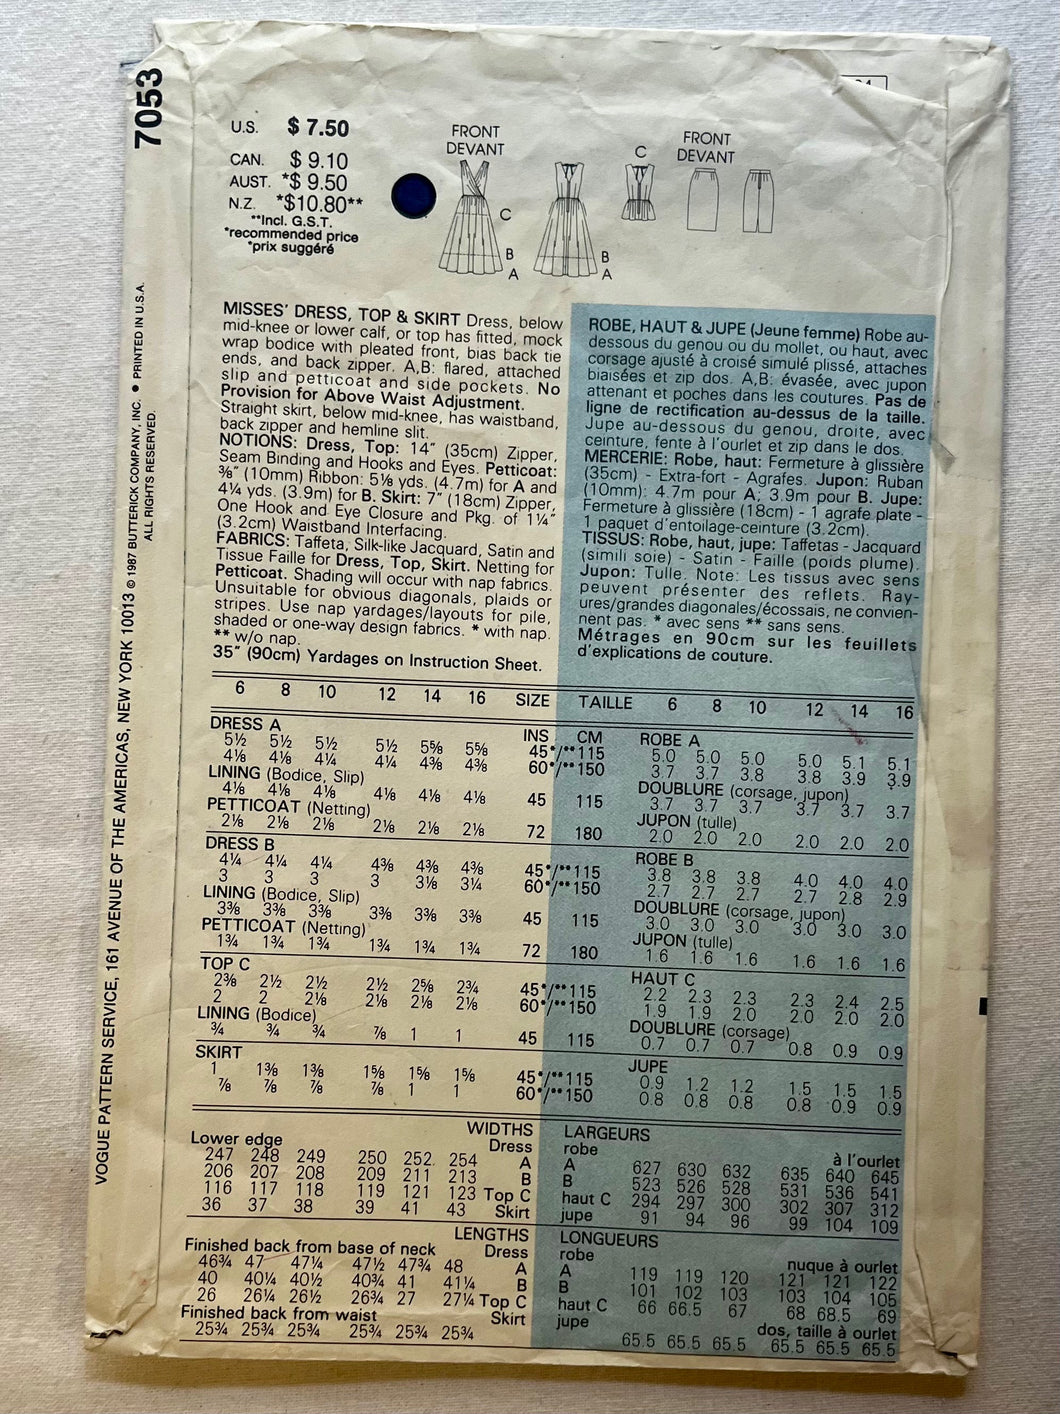 7053
U.S. $ 7.50
CAN. $ 9.10
AUST. *$ 9.50
N.Z. *$10.80**
**Incl. G.S.T.
*recommended price
*prix suggéré
FRONT
DEVANT
C
B
A
B
A
C
FRONT
DEVANT
VOGUE PATTERN SERVICE, 161 AVENUE OF THE AMERICAS, NEW YORK 10013 © 1987 BUTTERICK COMPANY, INC. • PRINTED IN U.S.A.
ALL RIGHTS RESERVED.
MISSES' DRESS, TOP & SKIRT Dress, below
mid-knee or lower calf, or top has fitted, mock
wrap bodice with pleated front, bias back tie
ends, and back zipper. A,B: flared, attached
slip and petticoat and side pockets. No
Provision for Above Waist Adjustment.
Straight skirt, below mid-knee, has waistband,
back zipper and hemline slit.
NOTIONS: Dress, Top: 14" (35cm) Zipper,
Seam Binding and Hooks and Eyes. Petticoat:
⅜" (10mm) Ribbon: 5⅛ yds. (4.7m) for A and
4¼ yds. (3.9m) for B. Skirt: 7" (18cm) Zipper,
One Hook and Eye Closure and Pkg. of 1¼"
(3.2cm) Waistband Interfacing.
FABRICS: Taffeta, Silk-like Jacquard, Satin and
Tissue Faille for Dress, Top, Skirt. Netting for
Petticoat. Shading will occur with nap fabrics.
Unsuitable for obvious diagonals, plaids or
stripes. Use nap yardages/layouts for pile,
shaded or one-way design fabrics. * with nap.
** w/o nap.
35" (90cm) Yardages on Instruction Sheet.
ROBE, HAUT & JUPE (Jeune femme) Robe au-
dessous du genou ou du mollet, ou haut, avec
corsage ajusté à croisé simulé plissé, attaches
biaisées et zip dos. A,B: évasée, avec jupon
attenant et poches dans les coutures. Pas de
ligne de rectification au-dessus de la taille.
Jupe au-dessous du genou, droite, avec
ceinture, fente à l'ourlet et zip dans le dos.
MERCERIE: Robe, haut: Fermeture à glissière
(35cm) - Extra-fort - Agrafes. Jupon: Ruban
(10mm): 4.7m pour A; 3.9m pour B. Jupe:
Fermeture à glissière (18cm) - 1 agrafe plate -
1 paquet d'entoilage-ceinture (3.2cm).
TISSUS: Robe, haut, jupe: Taffetas - Jacquard
(simili soie) - Satin - Faille (poids plume).
Jupon: Tulle. Note: Les tissus avec sens
peuvent présenter des reflets. Ray-
ures/grandes diagonales/écossais, ne convien-
nent pas. * avec sens ** sans sens.
Métrages en 90cm sur les feuillets
d'explications de couture.
6 8 10 12 14 16 SIZE TAILLE 6 8 10 12 14 16
DRESS A INS CM ROBE A
5½ 5½ 5½ 5½ 5⅝ 5⅝ 45*/**115 5.0 5.0 5.0 5.0 5.1 5.1
4⅛ 4⅛ 4¼ 4¼ 4⅜ 4⅜ 60*/**150 3.7 3.7 3.8 3.8 3.9 3.9
LINING (Bodice, Slip) DOUBLURE (corsage, jupon)
4⅛ 4⅛ 4⅛ 4⅛ 4⅛ 4⅛ 45 115 3.7 3.7 3.7 3.7 3.7 3.7
PETTICOAT (Netting) JUPON (tulle)
2⅛ 2⅛ 2⅛ 2⅛ 2⅛ 2⅛ 72 180 2.0 2.0 2.0 2.0 2.0 2.0
DRESS B ROBE B
4¼ 4¼ 4¼ 4⅜ 4⅜ 4⅜ 45*/**115 3.8 3.8 3.8 4.0 4.0 4.0
3 3 3 3 3⅛ 3¼ 60*/**150 2.7 2.7 2.7 2.7 2.8 2.9
LINING (Bodice, Slip) DOUBLURE (corsage, jupon)
3⅜ 3⅜ 3⅜ 3⅜ 3⅜ 3⅜ 45 115 3.0 3.0 3.0 3.0 3.0 3.0
PETTICOAT (Netting) JUPON (tulle)
1¾ 1¾ 1¾ 1¾ 1¾ 1¾ 72 180 1.6 1.6 1.6 1.6 1.6 1.6
TOP C HAUT C
2⅜ 2½ 2½ 2½ 2⅝ 2¾ 45*/**115 2.2 2.3 2.3 2.3 2.4 2.5
2 2 2⅛ 2⅛ 2⅛ 2⅛ 60*/**150 1.9 1.9 2.0 2.0 2.0 2.0
LINING (Bodice) DOUBLURE (corsage)
¾ ¾ ¾ ⅞ 1 1 45 115 0.7 0.7 0.7 0.8 0.9 0.9
SKIRT JUPE
1 1⅜ 1⅜ 1⅝ 1⅝ 1⅝ 45*/**115 0.9 1.2 1.2 1.5 1.5 1.5
⅞ ⅞ ⅞ ⅞ 1 1 60*/**150 0.8 0.8 0.8 0.8 0.9 0.9
WIDTHS LARGEURS
Lower edge Dress robe à l'ourlet
247 248 249 250 252 254 A A 627 630 632 635 640 645
206 207 208 209 211 213 B B 523 526 528 531 536 541
116 117 118 119 121 123 Top C haut C 294 297 300 302 307 312
36 37 38 39 41 43 Skirt jupe 91 94 96 99 104 109
LENGTHS LONGUEURS
Finished back from base of neck Dress robe nuque à ourlet
46¾ 47 47¼ 47½ 47¾ 48 A A 119 119 120 121 121 122
40 40¼ 40½ 40¾ 41 41¼ B B 101 102 103 103 104 105
26 26¼ 26½ 26¾ 27 27¼ Top C haut C 66 66.5 67 68 68.5 69
Finished back from waist Skirt jupe dos, taille à ourlet
25¾ 25¾ 25¾ 25¾ 25¾ 25¾ 65.5 65.5 65.5 65.5 65.5 65.5